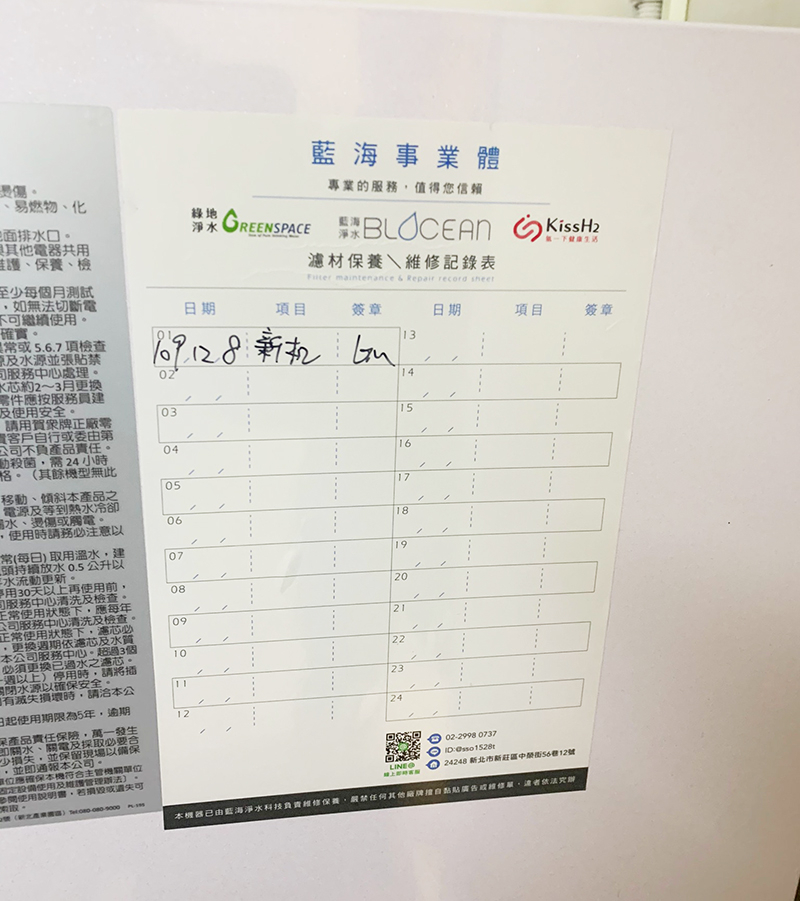 燙傷。
、易燃物、化
面排水口。
與其他電器共用
維護、保養、檢
至少每個月測試
，如無法切斷電
不可繼續使用。
確實。
異常或 5.6.7 項檢查
源及水源並張貼禁
司服務中心處理。
水芯約2～3月更換
零件應按服務員建
及使用安全。
請用賀眾牌正廠零
責客戶自行或委由第
公司不負產品責任。
動殺菌，需 24 小時
格。（其餘機型無此
移動、傾斜本產品之
電源及等到熱水冷卻
漏水、燙傷或觸電。
，使用時請務必注意以
常(每日) 取用溫水，建
頭持續放水 0.5 公升以
水流動更新。
停用30天以上再使用前，
司服務中心清洗及檢查。
正常使用狀態下，應每年
公司服務中心清洗及檢查。
正常使用狀態下，濾芯必
，更換週期依濾芯及水質
本公司服務中心。超過3個
必須更換已過水之濾芯。
一週以上）停用時，請將插
關閉水源以確保安全。
有滅失損壞時，請洽本公
日起使用期限為5年，逾期
保產品責任保險，萬一發生
即關水、關電及採取必要合
少損失，並保留現場以備保
，並即通報本公司。
單位應確保本機符合主管機關單位
固定設備使用及維護管理辦法〕。
參閱使用說明書，若損毀或遺失可
索取。
(新北產業園區) Tel:080-080-9000 PL-105
藍海事業體
專業的服務，值得您信賴
綠地淨水 GREENSPACE 藍海淨水 BLOCEAN KissH2 氫一下健康生活
濾材保養＼維修記錄表
Filter maintenance & Repair record sheet
日期 項目 簽章 日期 項目 簽章
01 109.12.8 新机 13
02 14
03 15
04 16
05 17
06 18
07 19
08 20
09 21
10 22
11 23
12 24
02-2998 0737
ID:@sso1528t
24248 新北市新莊區中榮街56巷12號
LINE@
線上即時客服
本機器已由藍海淨水科技負責維修保養，嚴禁任何其他廠牌擅自黏貼廣告或維修單，違者依法究辦